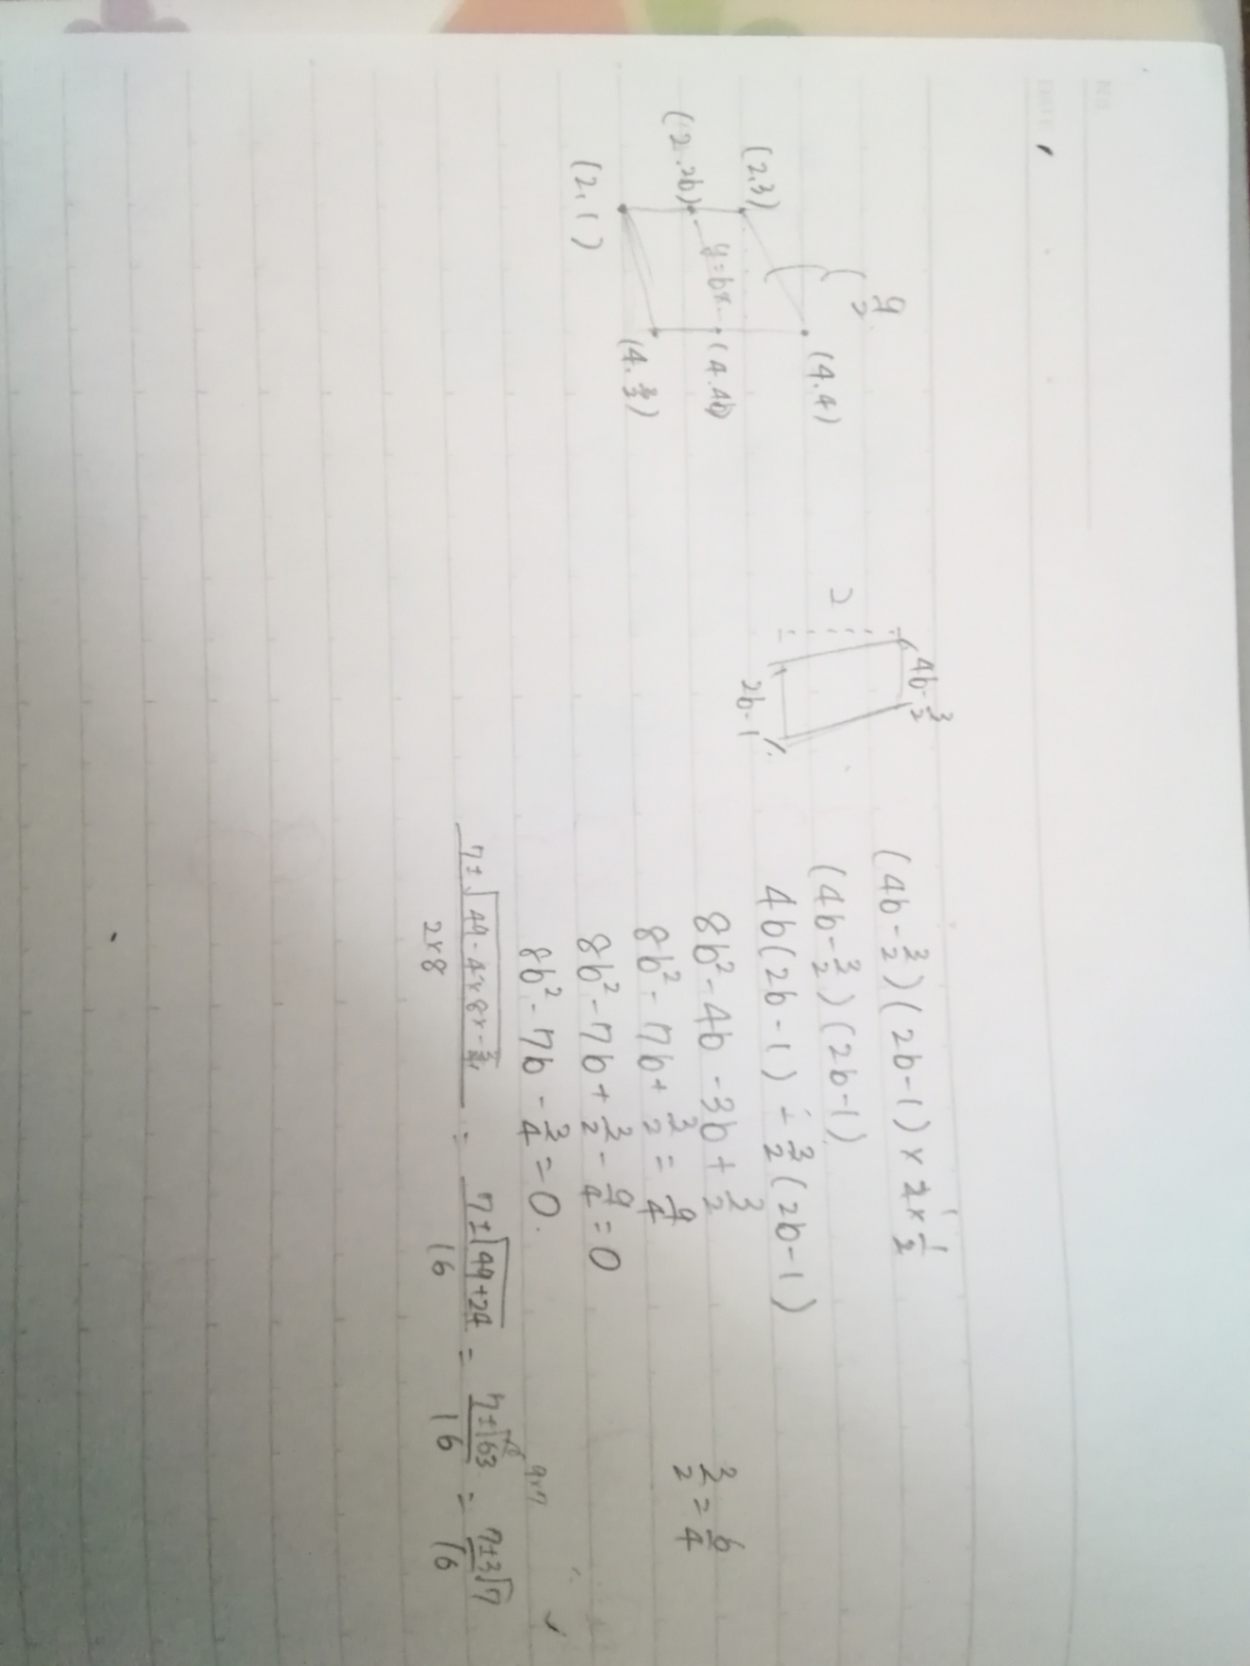 No.
DATE
9/2
(2,3)
(4,4)
(2,2b)
y=bx
(4,4b)
(2,1)
(4,3/2)
4b-3/2
2
2b-1
(4b-3/2)(2b-1)×2×1/2
(4b-3/2)(2b-1)
4b(2b-1)-3/2(2b-1)
8b²-4b-3b+3/2
3/2=6/4
8b²-7b+3/2=9/4
8b²-7b+3/2-9/4=0
8b²-7b-3/4=0.
9×7
7±√49-4×8×-3/4 / 2×8 = 7±√49+24 / 16 = 7±√63 / 16 = 7±3√7 / 16